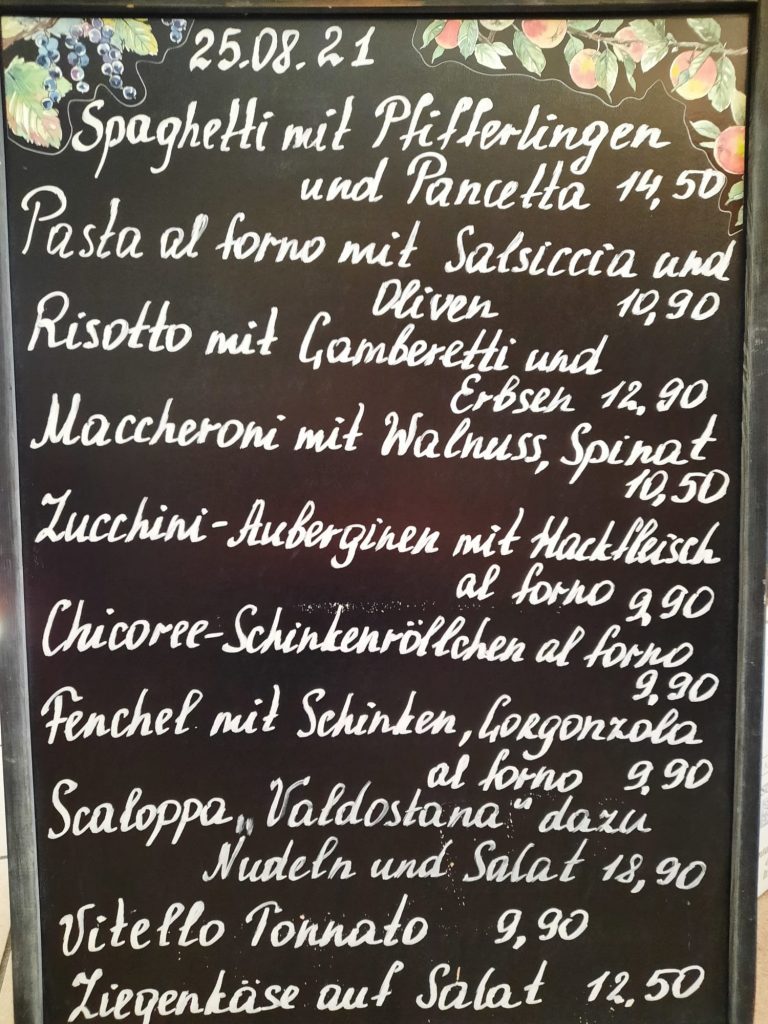 25.08.21
Spaghetti mit Pfifferlingen
und Pancetta 14,50
Pasta al forno mit Salsiccia und
Oliven 10,90
Risotto mit Gamberetti und
Erbsen 12,90
Maccheroni mit Walnuss, Spinat
10,50
Zucchini-Auberginen mit Hackfleisch
al forno 9,90
Chicoree-Schinkenröllchen al forno
9,90
Fenchel mit Schinken, Gorgonzola
al forno 9,90
Scaloppa „Valdostana" dazu
Nudeln und Salat 18,90
Vitello Tonnato 9,90
Ziegenkäse auf Salat 12.50